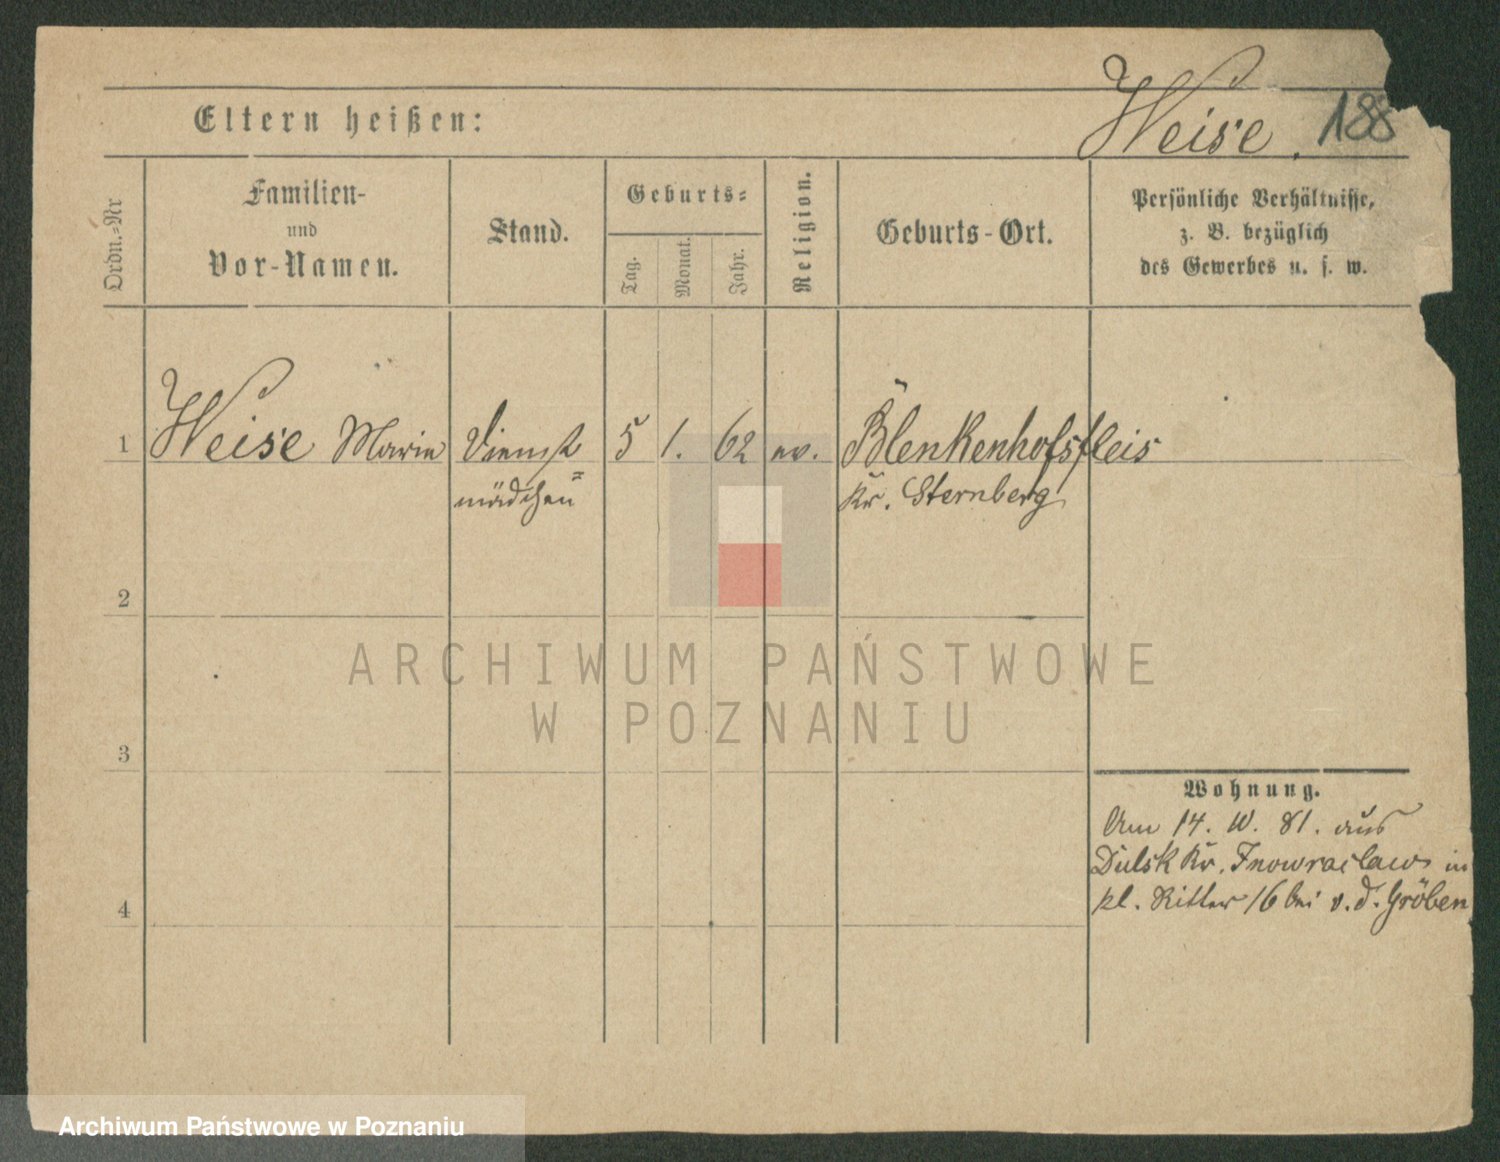 Weise. 188
Eltern heißen:
Ordn.-Nr
Familien-
und
Vor-Namen.
Stand.
Geburts-
Tag.
Monat.
Jahr.
Religion.
Geburts-Ort.
Persönliche Verhältnisse,
z. B. bezüglich
des Gewerbes u. s. w.
1 Weise Marie Dienst 5 1. 62 ev. Blenkenhofsfleis
mädchen Kr. Sternberg
2
3
4
Wohnung.
Am 14. 10. 81. aus
Dulsk Kr. Inowraclaw in
kl. Ritter 16 bei v. d. Gröben
ARCHIWUM PAŃSTWOWE
W POZNANIU
Archiwum Państwowe w Poznaniu